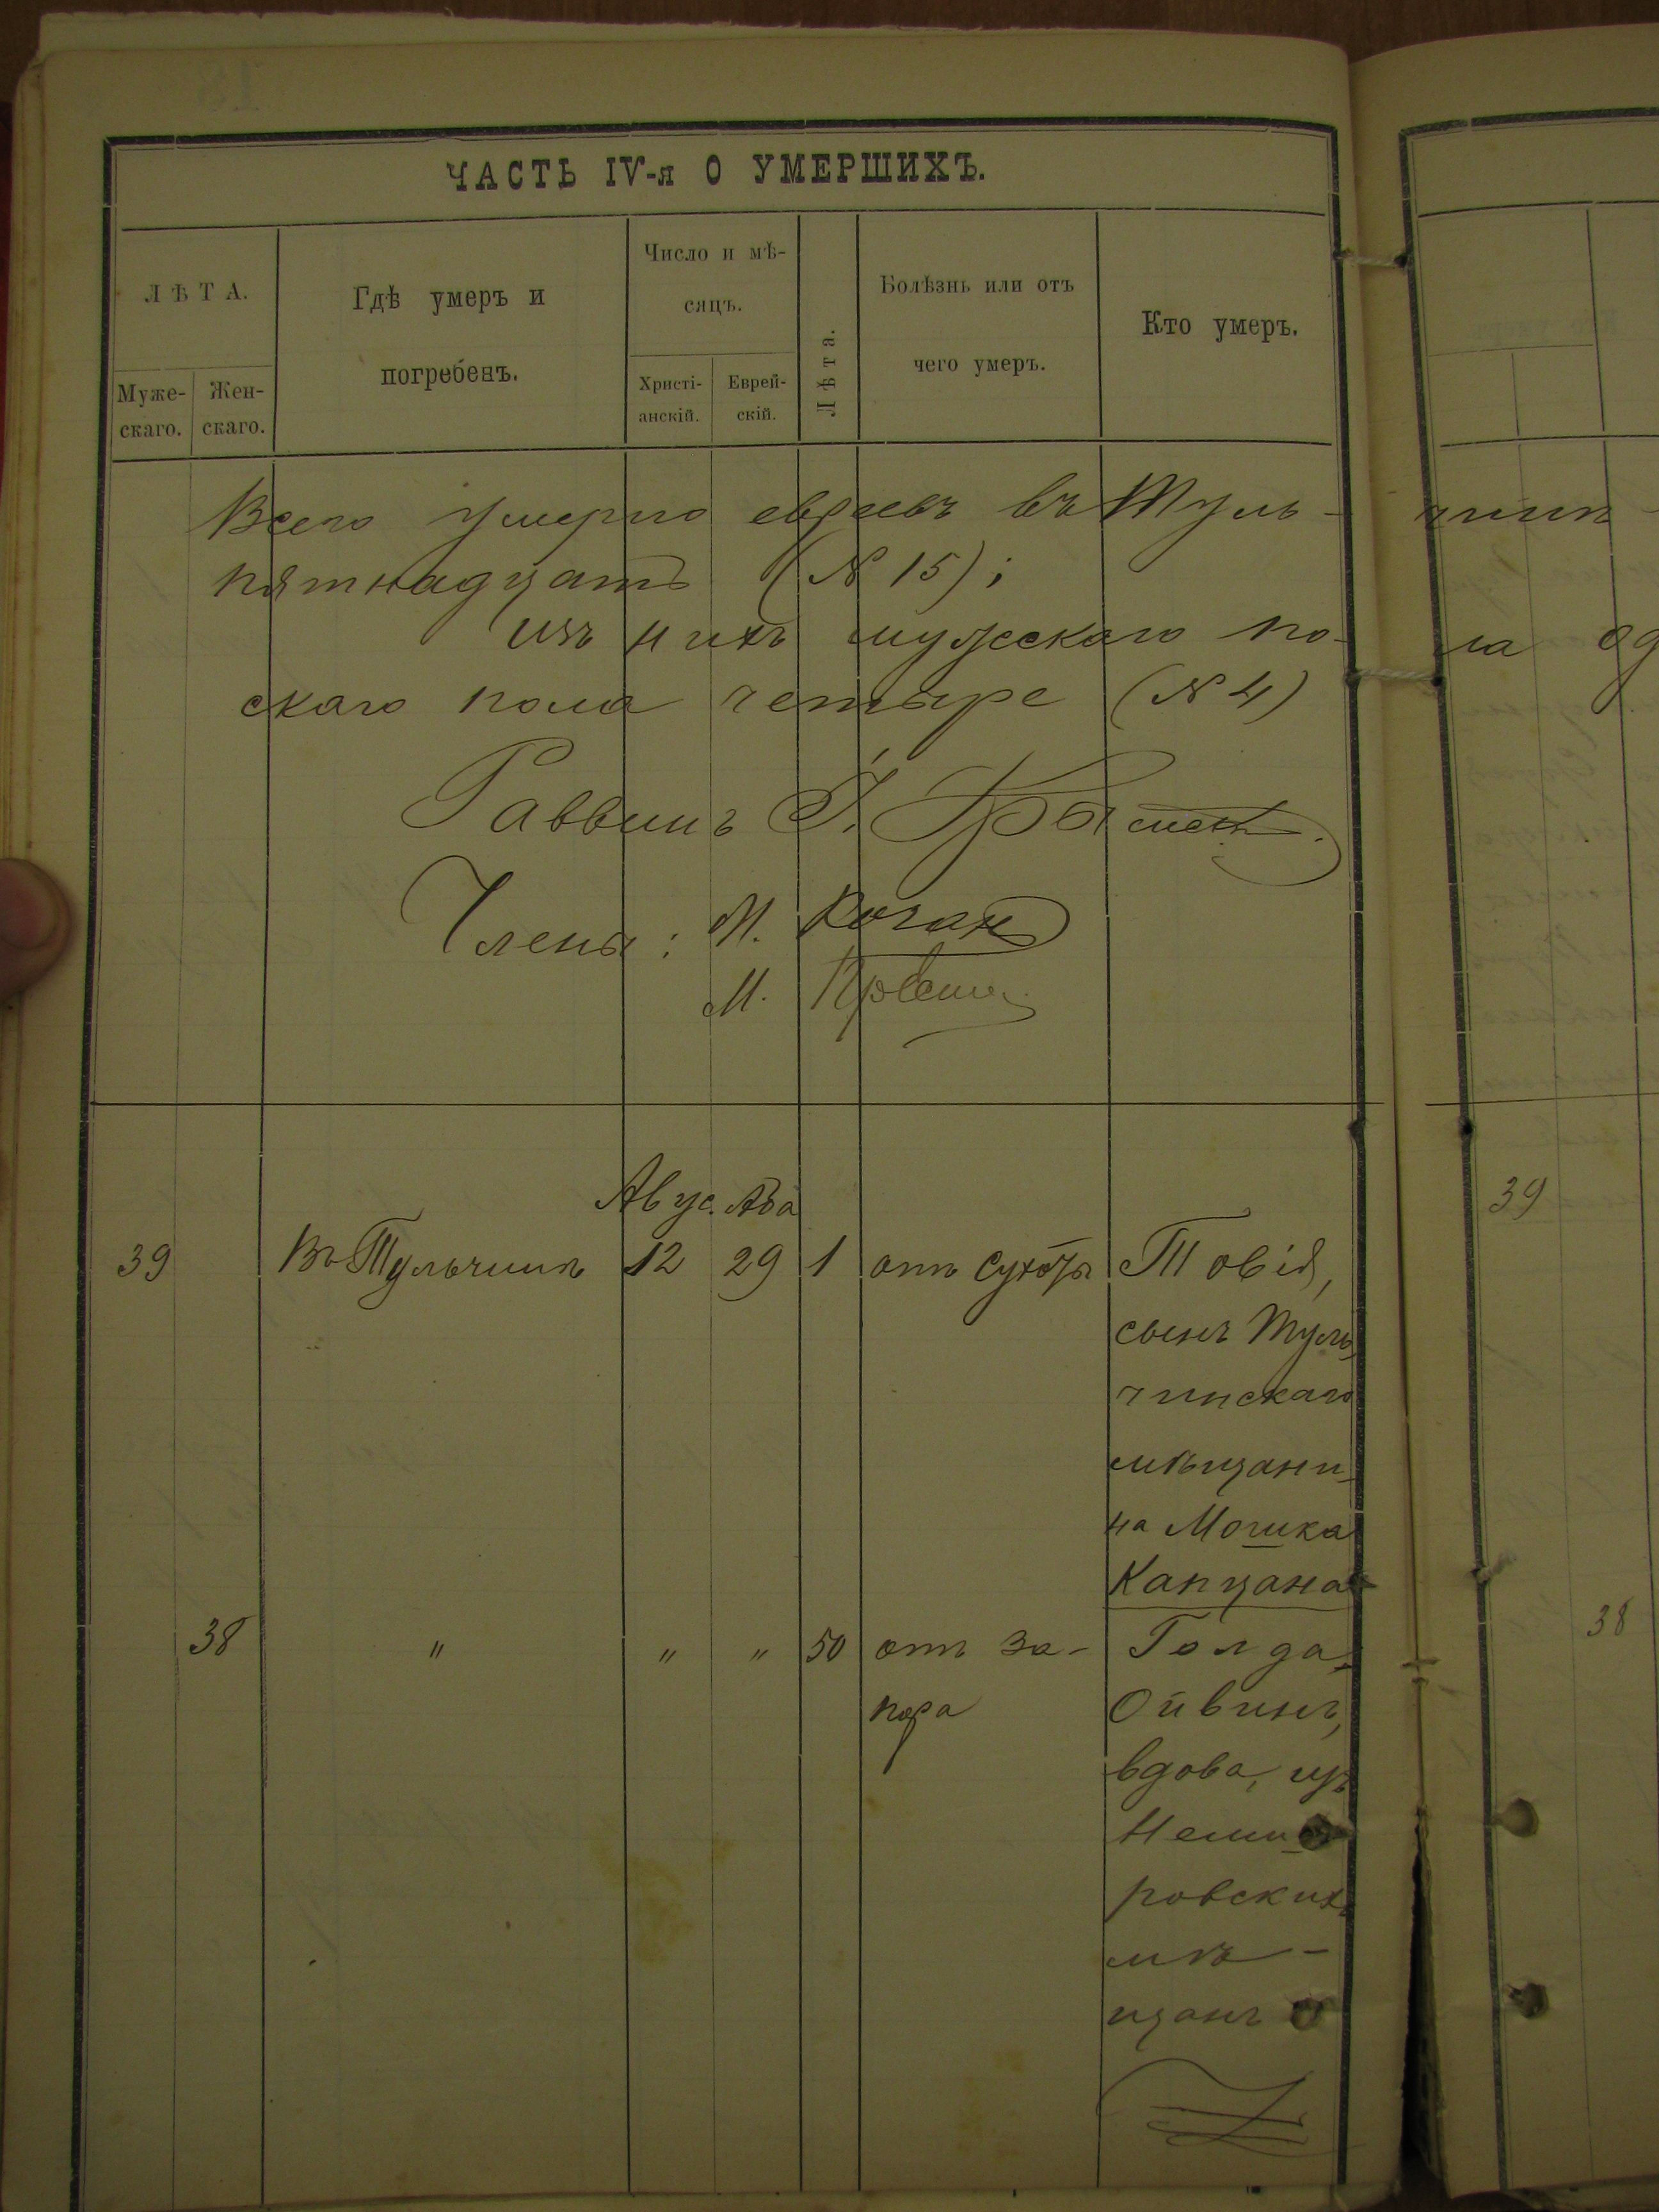 ЧАСТЬ IV-я О УМЕРШИХЪ.
ЛѢТА.
Муже-
скаго.
Жен-
скаго.
Гдѣ умеръ и
погребенъ.
Число и мѣ-
сяцъ.
Христі-
анскій.
Еврей-
скій.
Лѣта.
Болѣзнь или отъ
чего умеръ.
Кто умеръ.
Всего умерло евреевъ въ Туль- чинѣ
пятнадцать (№ 15);
изъ нихъ мужескаго по- ла од
скаго пола четыре (№ 4)
Раввинъ
Члены: М. Коган
М.
Авгус. Ава
39 Въ Тульчинѣ 12 29 1 отъ сухоты Товія, 39
сынъ Туль
чинскаго
мѣщани-
на Мошка
Капцана
38 " " " 50 отъ за- Голда 38
пора Ойвинъ,
вдова, изъ
Неми
ровскихъ
мѣ-
щанъ